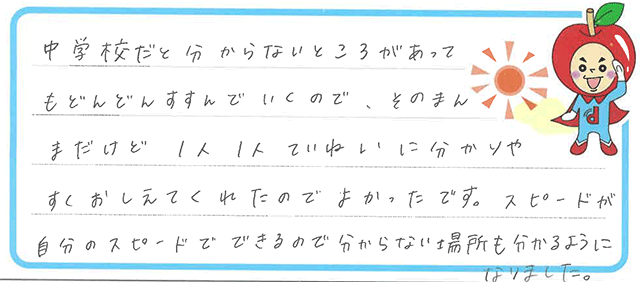 中学校だと分からないところがあって
もどんどんすすんでいくので、そのまん
まだけど1人1人ていねいに分かりや
すくおしえてくれたのでよかったです。スピードが
自分のスピードでできるので分からない場所も分かるように
なりました。
d